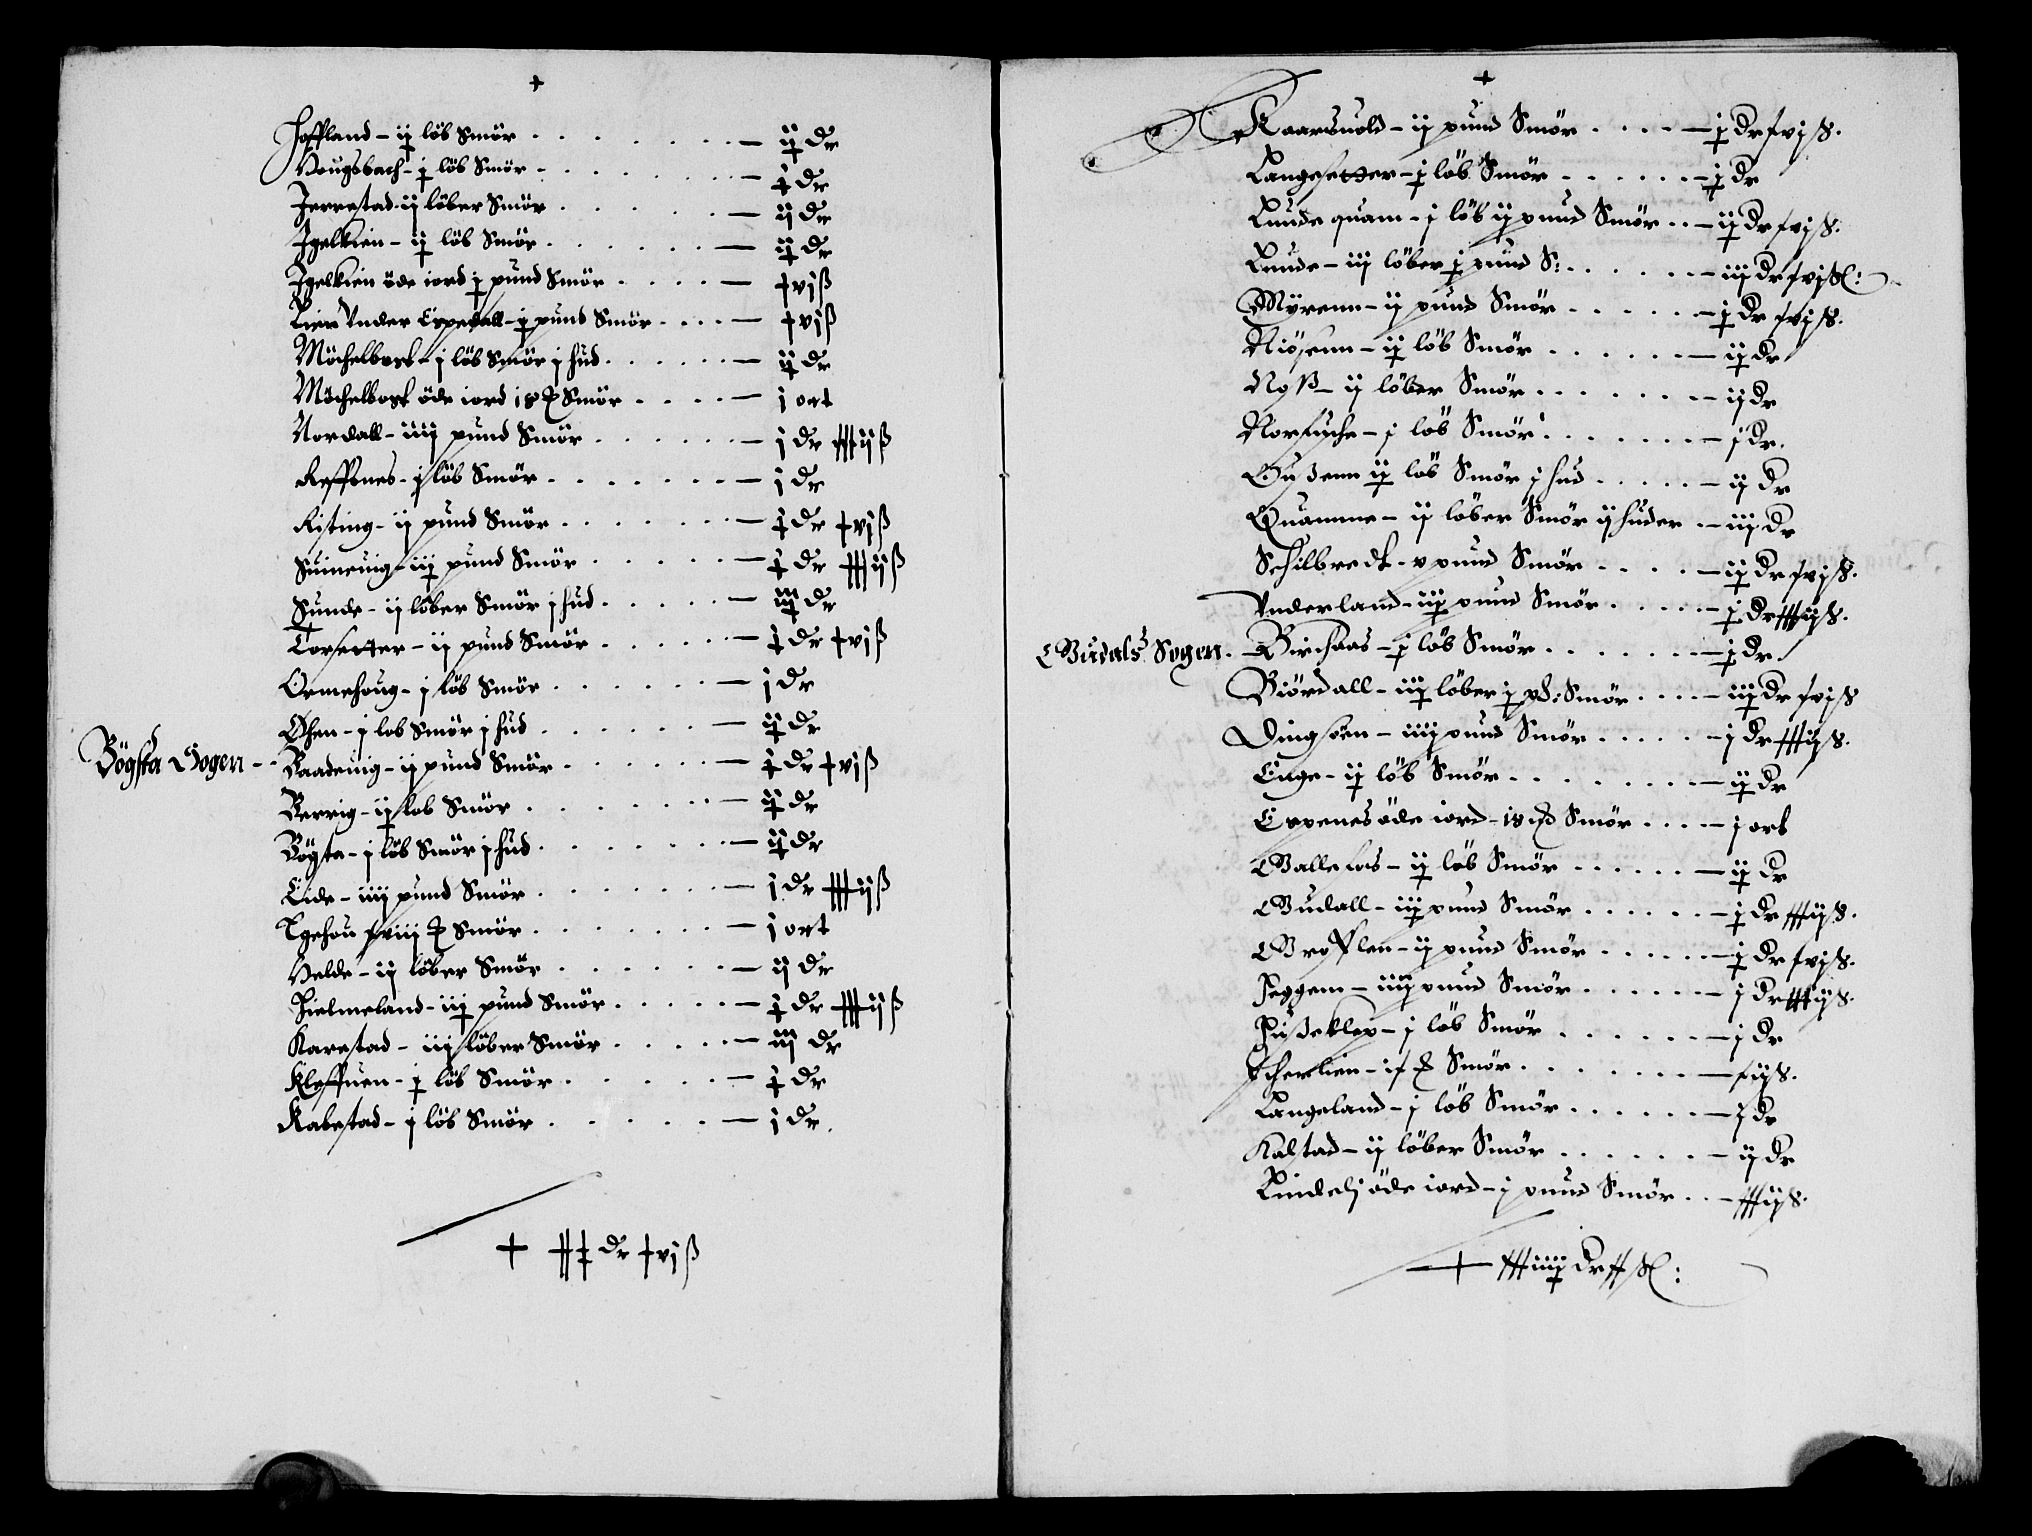 +
Hoffland - ij löb Smör . . . . . . — ij dr
Vougsbach - j löb Smör - . . . . . — j dr
Jerrestad - ij löber Smör . . . . . — ij dr
Igelkien - ij löb Smör . . . . . . — ij dr
Igelkien öde iord j pund Smör . . . . — xvj ß
Lien Vnder Espedall - j pund Smör . . . — xvj ß
Möchelbost - j löb Smör j hud . . . . . — ij dr
Möchelbost öde iord 18 ℔ Smör . . . . — j ort
Nordall - iiij pund Smör . . . . . — j dr xxxij ß
Reffsnes - j löb Smör . . . . . . — j dr
Risting - ij pund Smör . . . . . . — j dr xvj ß
Suineuig - iij pund Smör . . . . . — j dr xxxij ß
Sunde - ij löber Smör j hud . . . . . — iij dr
Torsetter - ij pund Smör . . . . . — j dr xvj ß
Ormehoug - j löb Smör . . . . . . — j dr
Øhen - j löb Smör j hud . . . . . . — ij dr
Bögsta Sogen - - Baadeuig - ij pund Smör . . . . . . — j dr xvj ß
Berrig - ij löb Smör . . . . . . — ij dr
Bögta - j löb Smör j hud . . . . . . — ij dr
Eide - iiij pund Smör . . . . . . — j dr xxxij ß
Egehou xviij ℔ Smör . . . . . . — j ort
Velde - ij löber Smör . . . . . . — ij dr
Hielmeland - iij pund Smör . . . . . — j dr xxxij ß
Karestad - iij löber Smör . . . . . — iij dr
Kleffuen - j löb Smör . . . . . . — j dr
Rabestad - j löb Smör . . . . . . — j dr .
+ xxx dr xvj ß
+
Kaarsuold - ij pund Smör . . . . — j dr xvj ß.
Langesetter - j löb Smör . . . . . . — j dr
Lunde quam - j löb ij pund Smör . . — ij dr xvj ß.
Lunde - iij löber j pund S: . . . . . . — iij dr xvj ß:
Myrenn - ij pund Smör . . . . . . — j dr xvj ß.
Niösenn - ij löb Smör . . . . . . — ij dr
Noß - ij löber Smör . . . . . . . — ij dr
Norsuche - j löb Smör . . . . . . . — j dr.
Ousenn ij löb Smör j hud . . . . . — ij dr
Quamme - ij löber Smör ij huder . — iij dr
Schilbredt - v pund Smör . . . . — ij dr xvj ß.
Vnderland - iij pund Smör . . . . . — j dr xxxij ß.
Gudals Sogen. — Birchaas - j löb Smör . . . . . . . — j dr
Biördall - iij löber j pd: Smör . . . . — iij dr xvj ß
Dingsöen - iiij pund Smör . . . . . — j dr xxxij ß.
Enge - ij löb Smör . . . . . . . . — ij dr
Espenes öde iord - 18 ℔ Smör . . . . — j ort
Galle los - ij löb Smör . . . . . . — ij dr
Gudall - iij pund Smör . . . . . . — j dr xxxij ß.
Grofflen - ij pund Smör . . . . . — j dr xvj ß.
Heggem - iiij pund Smör . . . . . — j dr xxxij ß.
Hußeklep - j löb Smör . . . . . . — j dr
Icherlien - if ℔ Smör . . . . . . . — xij ß.
Langeland - j löb Smör . . . . . . — j dr
Kalstad - ij löber Smör . . . . . . — ij dr
Lindelj öde iord - j pund Smör . . — xxxij ß.
+ xxxiiij dr xx ß: